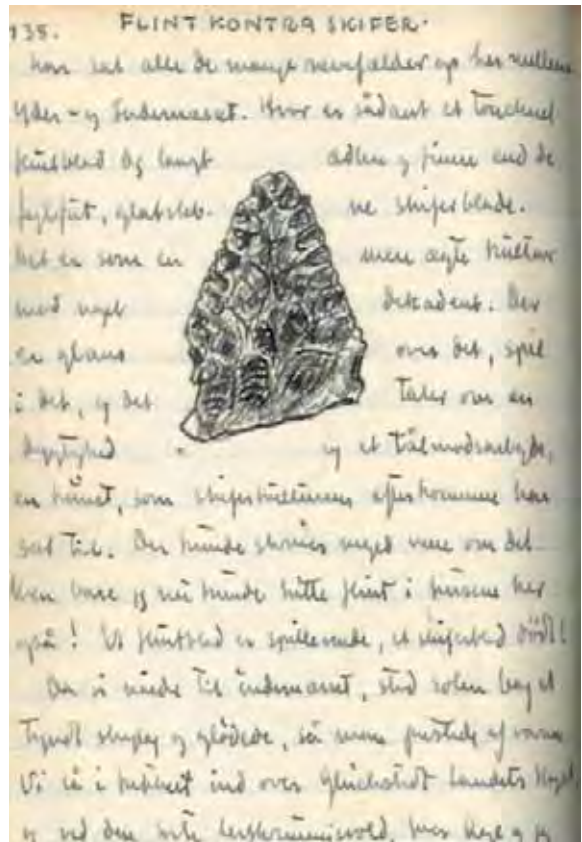 135. FLINT KONTRA SKIFER.
han sat alle de mange rævefælder op her mellem
Yder- og Indernæset. Hvor er sådant et
flintblad dog langt ædlere og finere end de
fejlfrit, glatsleb- ne skiferblade.
Det er som en mere ægte kultur
mod noget dekadent. Der
er glans over det, spil
i det, og det taler om en
dygtighed og et tålmodsarbejde,
en kunst, som skiferkulturens efterkommere har
sat til. Der kunde skrives meget mere om det.
Men bare jeg nu kunde hitte flint i husene her
også! Et flintblad er spillevende, et skiferblad dødt!
Da vi nåede til indernæset, stod solen bag et
tyndt og glødede, så man pustede af varme
Vi så i kikkert ind over Glückstadt Landets
og ved den hvor og jeg